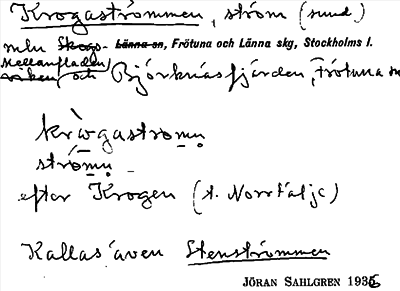 Krogaströmmen, ström (sund)
mln Skogs- Länna sn, Frötuna och Länna skg, Stockholms l.
Mellanfladen
viken och Björknäsfjärden, Frötuna sn
kràwgastromn
strömn
efter Krogen (t. Norrtälje)
Kallas även Stenströmmen
JÖRAN SAHLGREN 1935